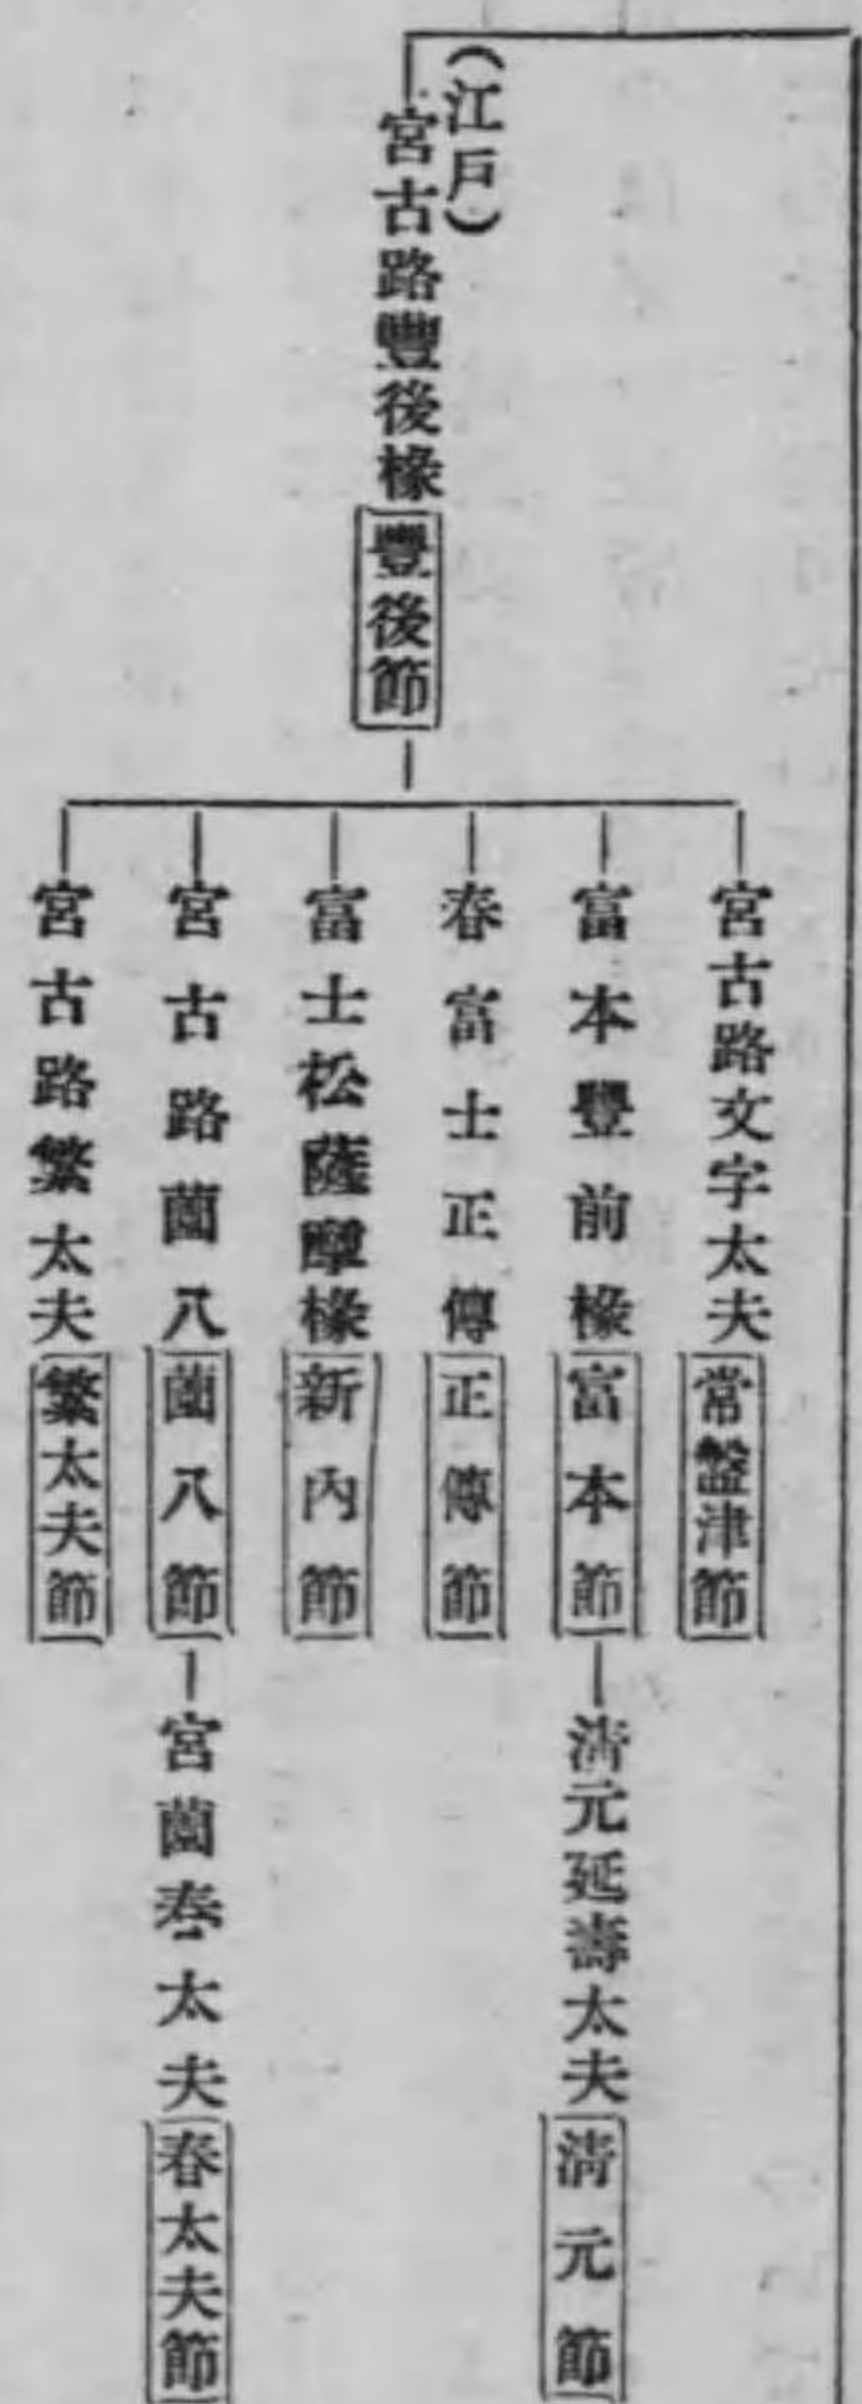 (江戶)
宮古路豐後椽 豐後節
宮古路文字太夫 常盤津節
富本豐前椽 富本節
淸元延壽太夫 淸元節
春富士正傳 正傳節
富士松薩摩椽 新內節
宮古路薗八 薗八節
宮薗春太夫 春太夫節
宮古路繁太夫 繁太夫節